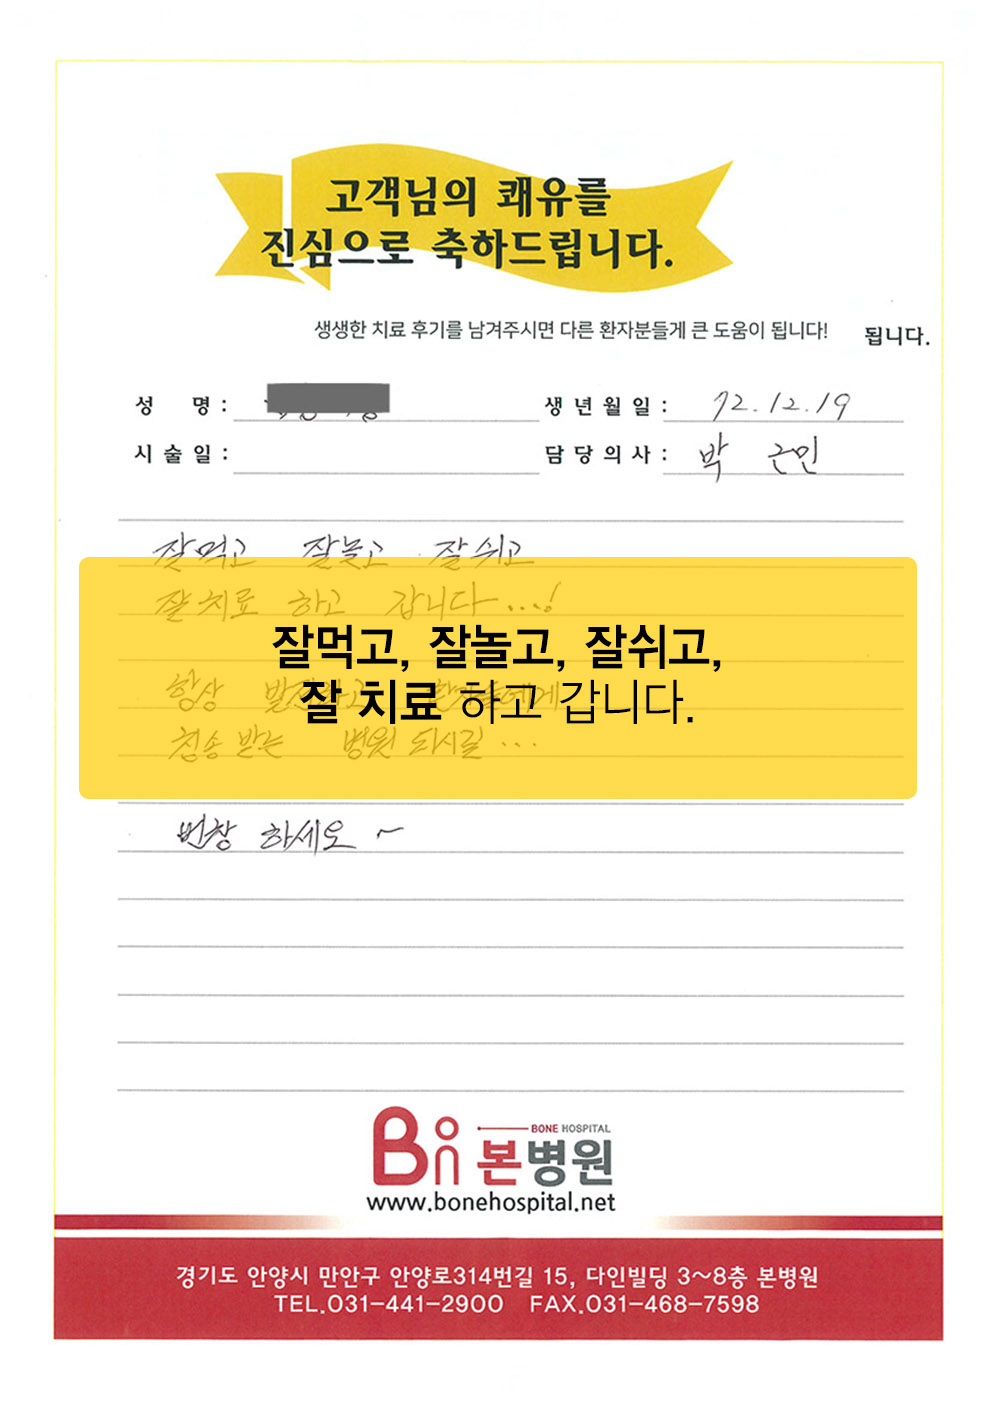 고객님의 쾌유를
진심으로 축하드립니다.
생생한 치료 후기를 남겨주시면 다른 환자분들게 큰 도움이 됩니다! 됩니다.
성 명 : 생년월일 : 72.12.19
시술일 : 담당의사 : 박 근민
잘먹고 잘놀고 잘쉬고
잘 치료 하고 갑니다...!
잘먹고, 잘놀고, 잘쉬고,
잘 치료 하고 갑니다.
항상 발전하고 환자들에게
칭송 받는 병원 되시길...
번창 하세요 ~
Bon BONE HOSPITAL
본병원
www.bonehospital.net
경기도 안양시 만안구 안양로314번길 15, 다인빌딩 3~8층 본병원
TEL.031-441-2900 FAX.031-468-7598